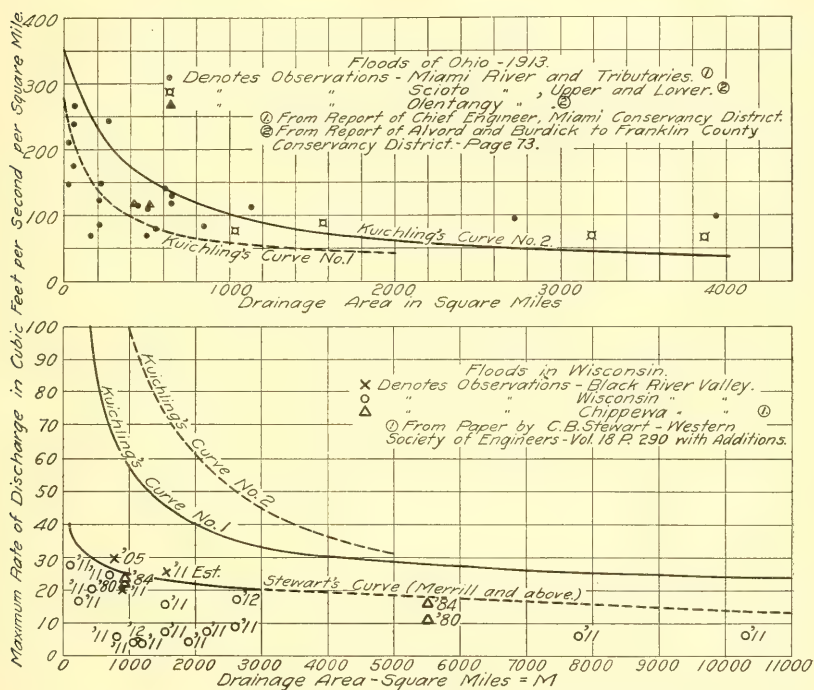 Maximum Rate of Discharge in Cubic Feet per Second per Square Mile.
400
300
200
100
0
Floods of Ohio - 1913.
• Denotes Observations - Miami River and Tributaries. ①
¤ " " Scioto " , Upper and Lower. ②
▲ " " Olentangy " . ②
① From Report of Chief Engineer, Miami Conservancy District.
② From Report of Alvord and Burdick to Franklin County
Conservancy District. - Page 73.
Kuichling's Curve No. 2.
Kuichling's Curve No. 1
0 1000 2000 3000 4000
Drainage Area in Square Miles
100
90
80
70
60
50
40
30
20
10
0
Floods in Wisconsin.
× Denotes Observations - Black River Valley.
o " " Wisconsin " "
△ " " Chippewa " " ①
① From Paper by C.B. Stewart - Western
Society of Engineers - Vol. 18 P. 290 with Additions.
Kuichling's Curve No. 2
Kuichling's Curve No. 1
Stewart's Curve (Merrill and above.)
'05
'11 '11 '84 '11 Est.
'11 '80 '11
'11 '11 '12 '84
'80
'11 '12 '11 '11 '11 '11 '11
'11 '11
0 1000 2000 3000 4000 5000 6000 7000 8000 9000 10000 11000
Drainage Area - Square Miles = M